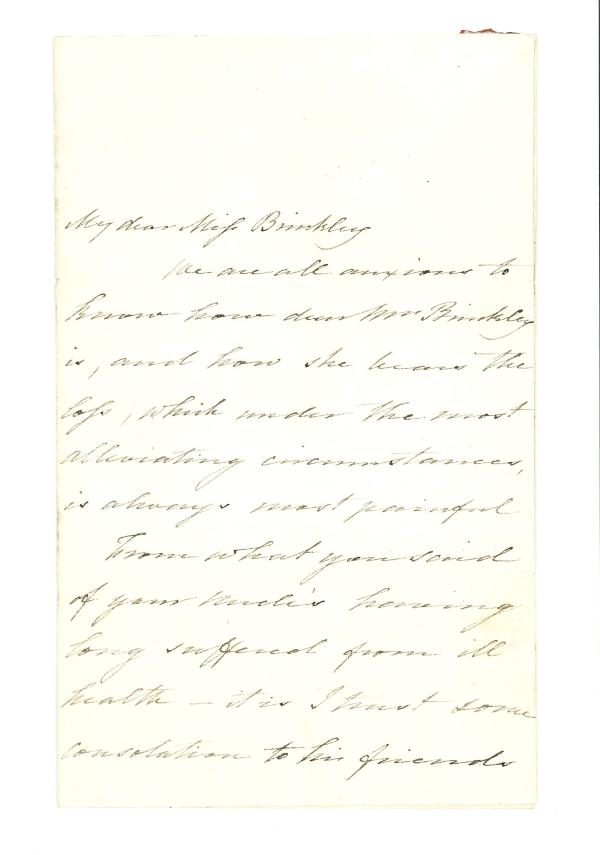 My dear Miss Brinkley
We are all anxious to
know how dear Mrs Brinkley
is, and how she bears the
loss, which under the most
alleviating circumstances,
is always most painful
From what you said
of your Uncle's having
long suffered from ill
health – it is I trust some
consolation to his friends